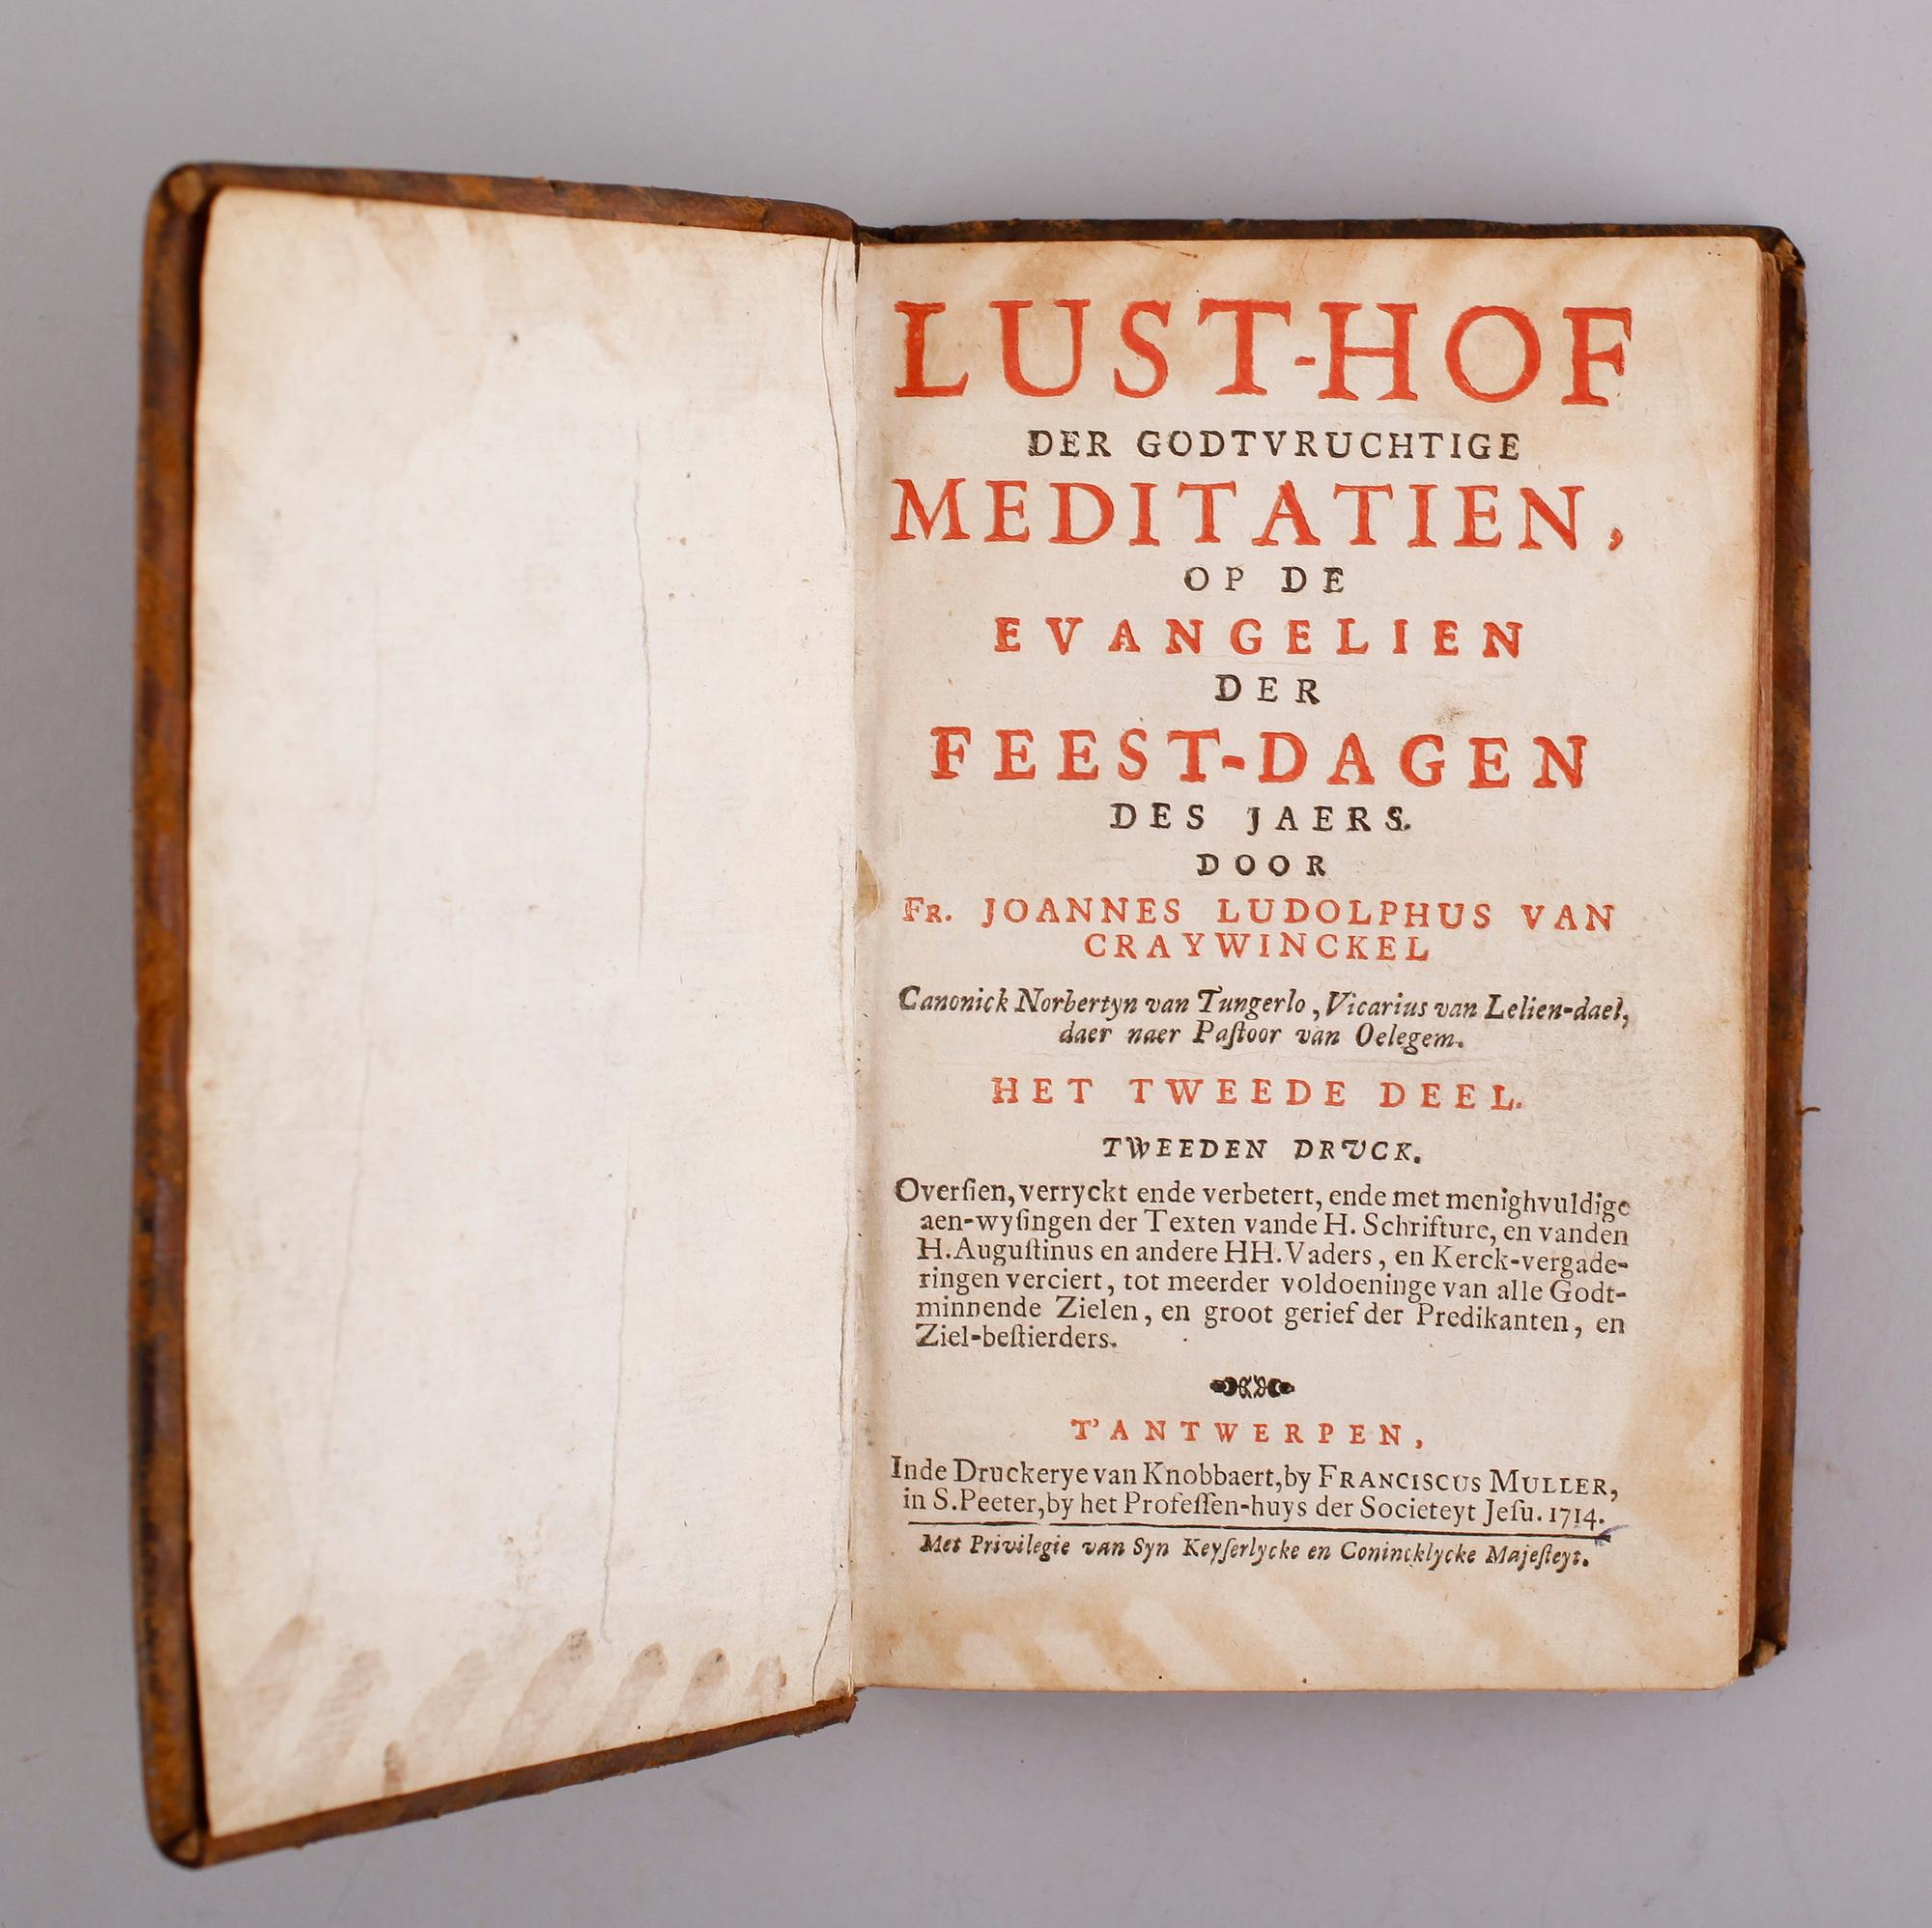 LUST-HOF
DER GODTVRUCHTIGE
MEDITATIEN,
OP DE
EVANGELIEN
DER
FEEST-DAGEN
DES JAERS.
DOOR
FR. JOANNES LUDOLPHUS VAN
CRAYWINCKEL
Canonick Norbertyn van Tungerlo, Vicarius van Lelien-dael,
daer naer Paſtoor van Oelegem.
HET TWEEDE DEEL.
TWEEDEN DRVCK.
Overſien, verryckt ende verbetert, ende met menighvuldige
aen-wyſingen der Texten vande H. Schrifture, en vanden
H. Auguſtinus en andere HH. Vaders, en Kerck-vergade-
ringen verciert, tot meerder voldoeninge van alle Godt-
minnende Zielen, en groot gerief der Predikanten, en
Ziel-beſtierders.
T'ANTWERPEN,
Inde Druckerye van Knobbaert, by FRANCISCUS MULLER,
in S. Peeter, by het Profeſſen-huys der Societeyt Jeſu. 1714.
Met Privilegie van Syn Keyſerlycke en Conincklycke Majeſteyt.